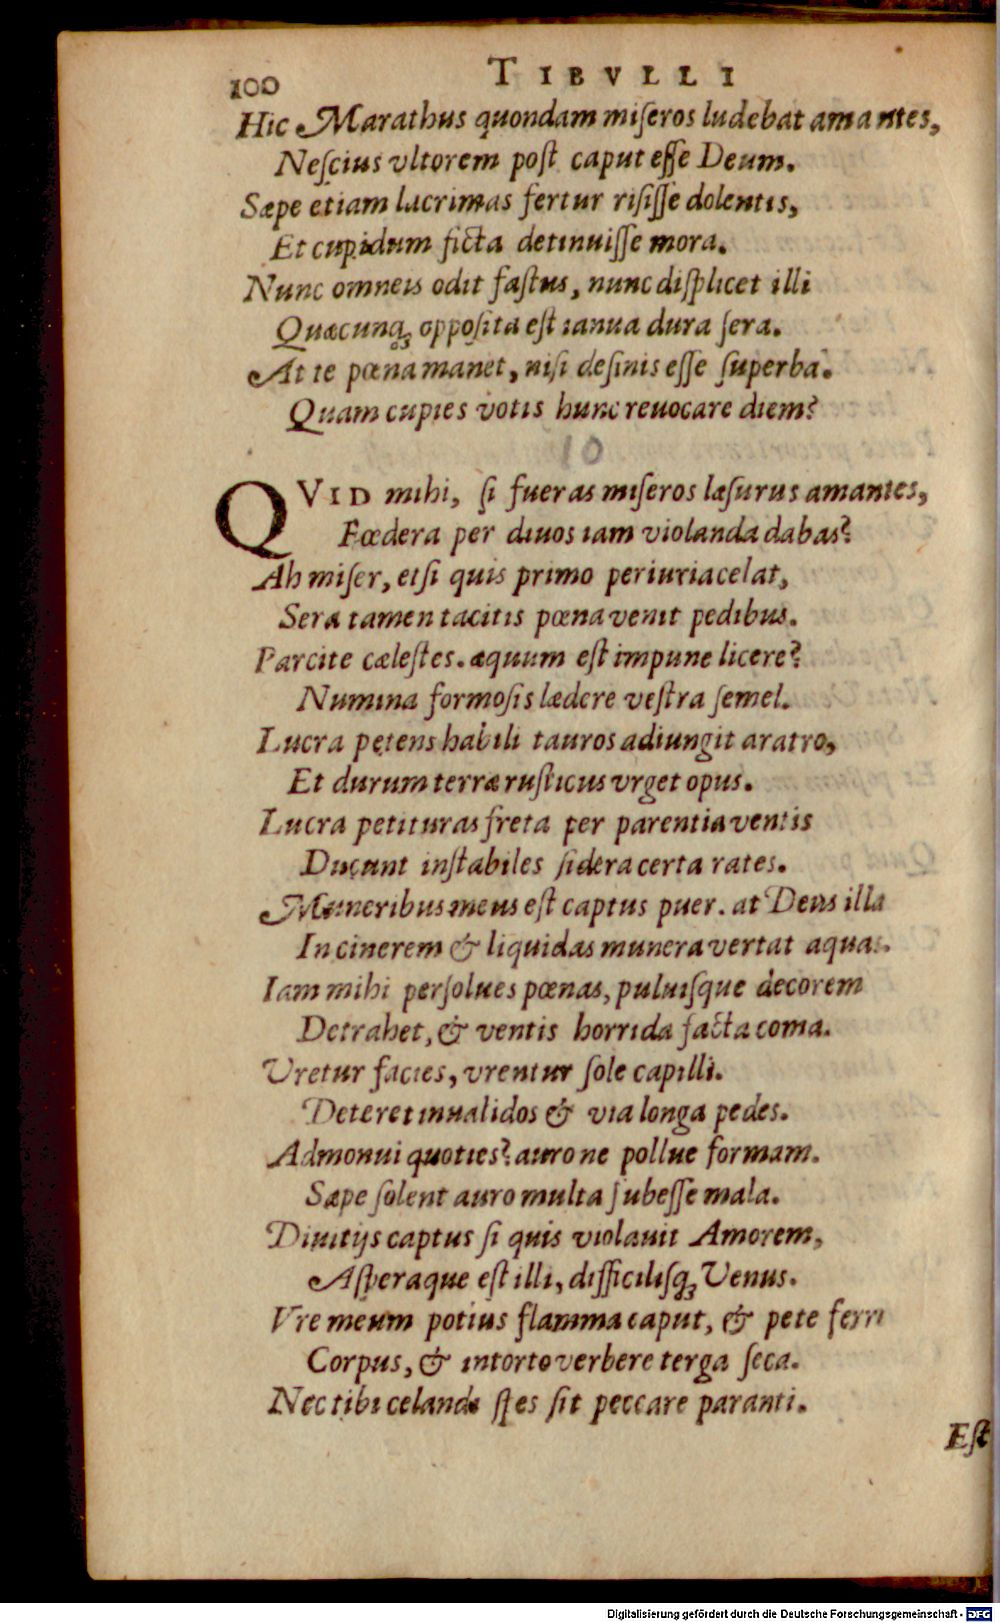 100
TIBVLLI
Hic Marathus quondam miſeros ludebat amantes,
Neſcius vltorem poſt caput eſſe Deum.
Sæpe etiam lacrimas fertur riſiſſe dolentis,
Et cupidum ficta detinuiſſe mora.
Nunc omneis odit faſtus, nunc diſplicet illi
Quæcunqꝫ oppoſita est ianua dura ſera.
At te pœna manet, niſi deſinis eſſe ſuperba.
Quam cupies votis hunc reuocare diem?
10
QVID mihi, ſi fueras miſeros læſurus amantes,
Fœdera per diuos iam violanda dabas?
Ah miſer, etſi quis primo periuria celat,
Sera tamen tacitis pœna venit pedibus.
Parcite cæleſtes. æquum eſt impune licere?
Numina formoſis lædere veſtra ſemel.
Lucra petens habili tauros adiungit aratro,
Et durum terræ ruſticus vrget opus.
Lucra petituras freta per parentia ventis
Ducunt inſtabiles ſidera certa rates.
Muneribus meus eſt captus puer. at Deus illa
In cinerem & liquidas munera vertat aquas.
Iam mihi perſolues pœnas, puluiſque decorem
Detrahet, & ventis horrida facta coma.
Vretur facies, vrentur ſole capilli.
Deteret inualidos & via longa pedes.
Admonui quoties? auro ne pollue formam.
Sæpe ſolent auro multa ſubeſſe mala.
Diuitijs captus ſi quis violauit Amorem,
Aſperaque eſt illi, difficiliſqꝫ Venus.
Vre meum potius flamma caput, & pete ferri
Corpus, & intorto verbere terga ſeca.
Nec tibi celandi ſpes ſit peccare paranti.
Eſt
Digitalisierung gefördert durch die Deutsche Forschungsgemeinschaft - DFG